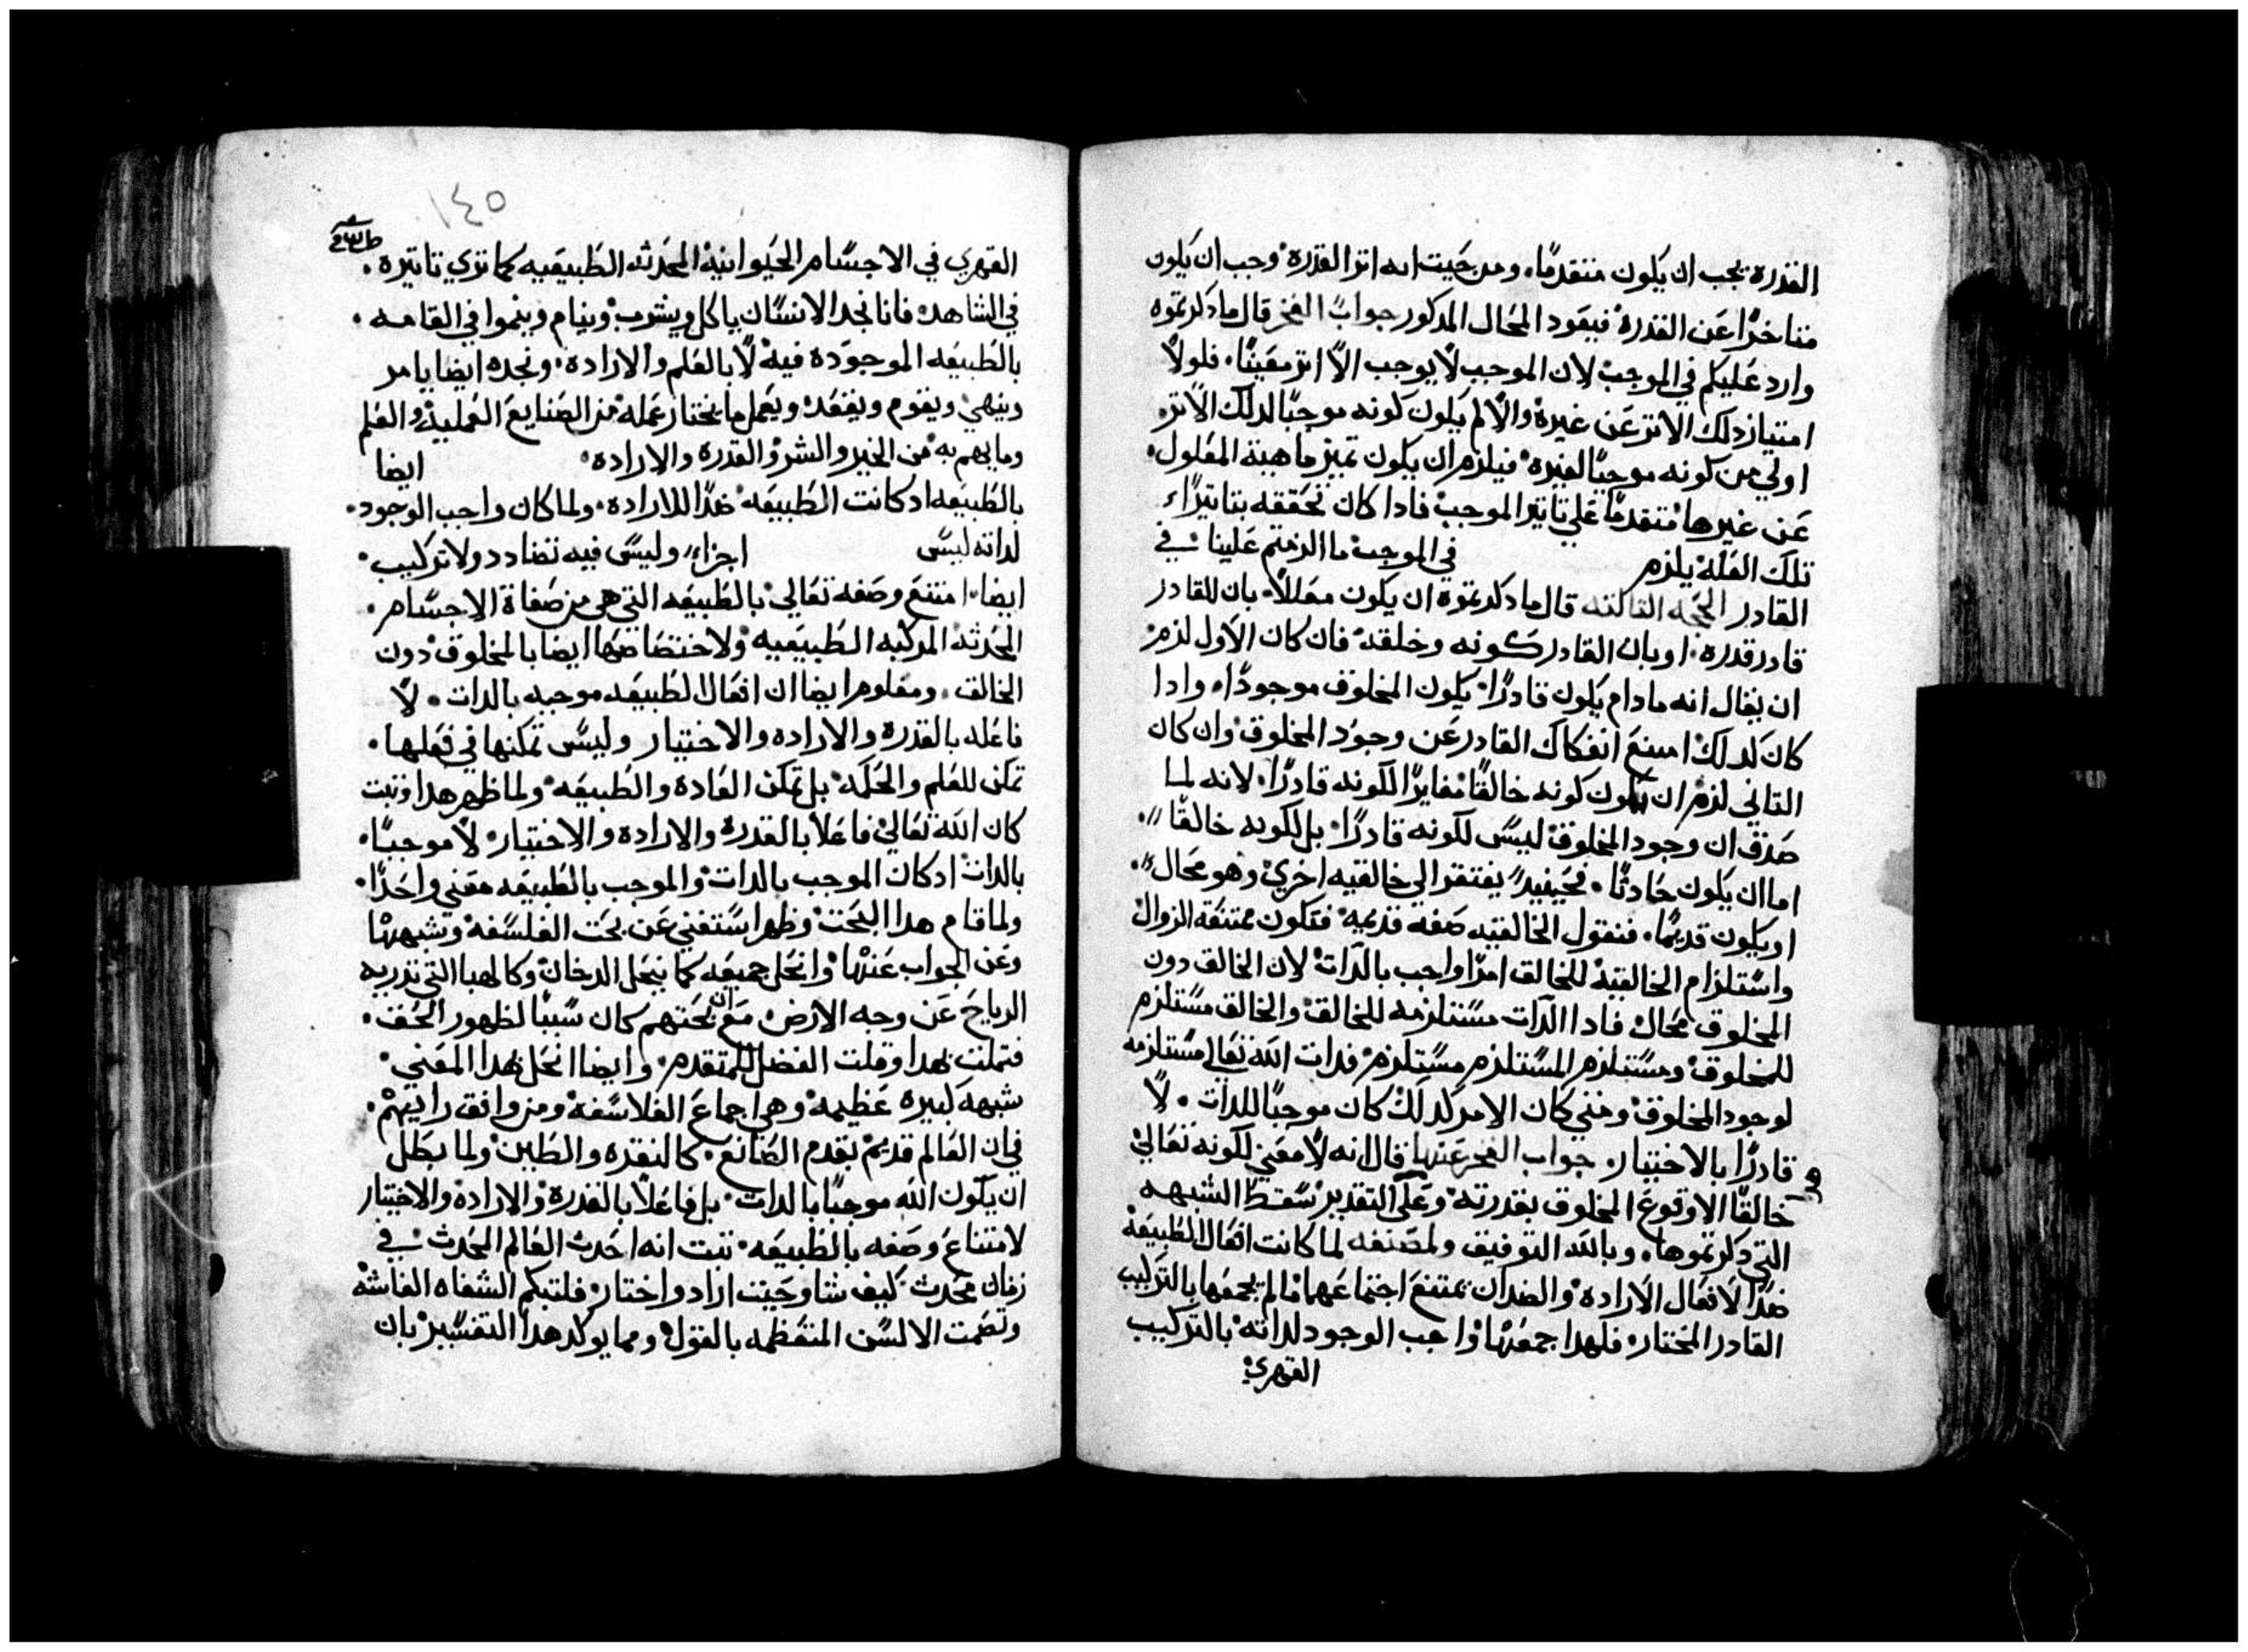 القدرة يجب ان يكون متقدمًا. ومن حيت انه اتر القدرة وجب ان يكون
متاخرًا عَن القدرة فيعَود المحَال المدكور جواب الفخر قال ما دكرتموه
وارد عَليكم في الموجب لان الموجب لا يوجب الا اتر معَينًا. فلولا
امتياز دلك الاتر عَن غيره والا لم يكون كونه موجبًا لدلك الاتر
اولي من كونه موجبًا لغيره فيلزم ان يكون تميز ماهية المعَلول
عَن غيرها متقدمًا عَلي تاتير الموجب فادا كان تحَققه بتاتيرًاء
تلك العَله يلزم في الموجب ما الزمتم عَلينا في
القادر الحجه التالته قال ما دكرتموه ان يكون معَللاً بان للقادر
قادر قدرة. او بان القادر كونه وخلقه فان كان الاول لزم
ان يقال انه مادام يكون قادرًا يكون المخلوق موجودًا. وادا
كان كدلك امتنع انفكاك القادر عَن وجود المخلوق وان كان
التاني لزم ان يكون كونه خالقًا مغايرًا لكونه قادرًا. لانه لما
صَدق ان وجود المخلوق ليسَ لكونه قادرًا بل لكونه خالقًا
اما ان يكون حَادتًا. فحَينيد يفتقر الي خالقيه اخري وهو محَال
او يكون قديمًا. فنقول الخالقيه صَفه قديمه فتكون ممتنعَة الزوال
واسَتلزام الخالقية للخالق امرًا واجب بالدات لان الخالق دون
المخلوق محَال فادا الدات مسَتلزمه للخالق والخالق مسَتلزم
للمخلوق ومسَتلزم المسَتلزم مسَتلزم فدات الله تعَالي مسَتلزمه
لوجود المخلوق ومتي كان الامر كدلك كان موجبًا للدات. لا
قادرًا بالاختيار. جواب الفخر عَنها قال انه لا معَني لكونه تعَالي
خالقًا الا وقوع المخلوق بقدرته وعَلي التقدير سَقط الشبهه
التي دكرتموها. وبالله التوفيق ولمصَنفه لما كانت افعَال الطَبيعَة
ضدًا لافعَال الاراده والضدان يمتنع اجتماعَهما ما لم يجمعَها بالتركيب
القادر المختار فلهدا جمعَها واجب الوجود لداته بالتركيب
القهري
١٤٥
القهري في الاجسَام الحَيوانية المحَدته الطَبيعَيه كما تري تاتيره.
في الشاهد. فانا نجد الانسَان ياكل ويشرب وينام وينموا في القامه.
بالطَبيعَه الموجودة فيه لا بالعَلم والاراده. ونجده ايضا يامر
وينهي ويقوم ويقعَد ويعَمل ما يختار عَمله من الصَنايع العَملية والعَلم
وما يهم به من الخير والشر والقدرة والاراده ايضا
بالطَبيعَه ادكانت الطَبيعَه ضدًا للاراده. ولما كان واجب الوجود.
لداته ليسَ اجزاء وليسَ فيه تضادد ولا تركيب.
ايضا. امتنع وصَفه تعَالي بالطَبيعَه التي هي من صَفاة الاجسَام.
المحَدته المركبه الطَبيعَيه ولاختصَاصَها ايضا بالمخلوق دون
الخالق. ومعَلوم ايضا ان افعَال الطَبيعَه موجبه بالدات. لا
فاعَله بالقدرة والاراده والاختيار وليسَ تمكنها في فعَلها.
تمكن للعَلم والحَكمَه بل تمكن العَادة والطَبيعَه ولما ظهر هدا وتبت
كان الله تعَالي فاعَلاً بالقدرة والاراده والاختيار لا موجبًا.
بالدات ادكان الموجب بالدات والموجب بالطَبيعَه معَني واحَدًا.
ولما قام هدا البحَت وظهر اسَتغني عَن بحَت الفلسَفه وشبهها
وعَن الجواب عَنها وانحَل جميعَه كما ينحَل الدخان وكالهبا التي تدريه
الرياحَ عَن وجه الارض مع ان بحَتهم كان سَببًا لظهور الحَق.
فتملت بهدا وقلت الفضل للمتقدم. وايضا انحَل بهدا المعَني.
شبهه كبيره عَظيمه وهي اجماع الفلاسَفة ومن وافق رايهم.
في ان العَالم قديم بقدم الصَانع. كالنقره والطَين ولما بطَل
ان يكون الله موجبًا بالدات بل فاعَلاً بالقدرة والاراده والاختيار
لامتناع وصَفه بالطَبيعَه. تبت انه احَدت العَالم المحَدت في
زمان محَدت كيف شا وحَيت اراد واختار فلتبكم الشفاه الغاشه
وتصَمت الالسَن المتعَظمه بالقول ومما يوكد هدا التفسَير بان